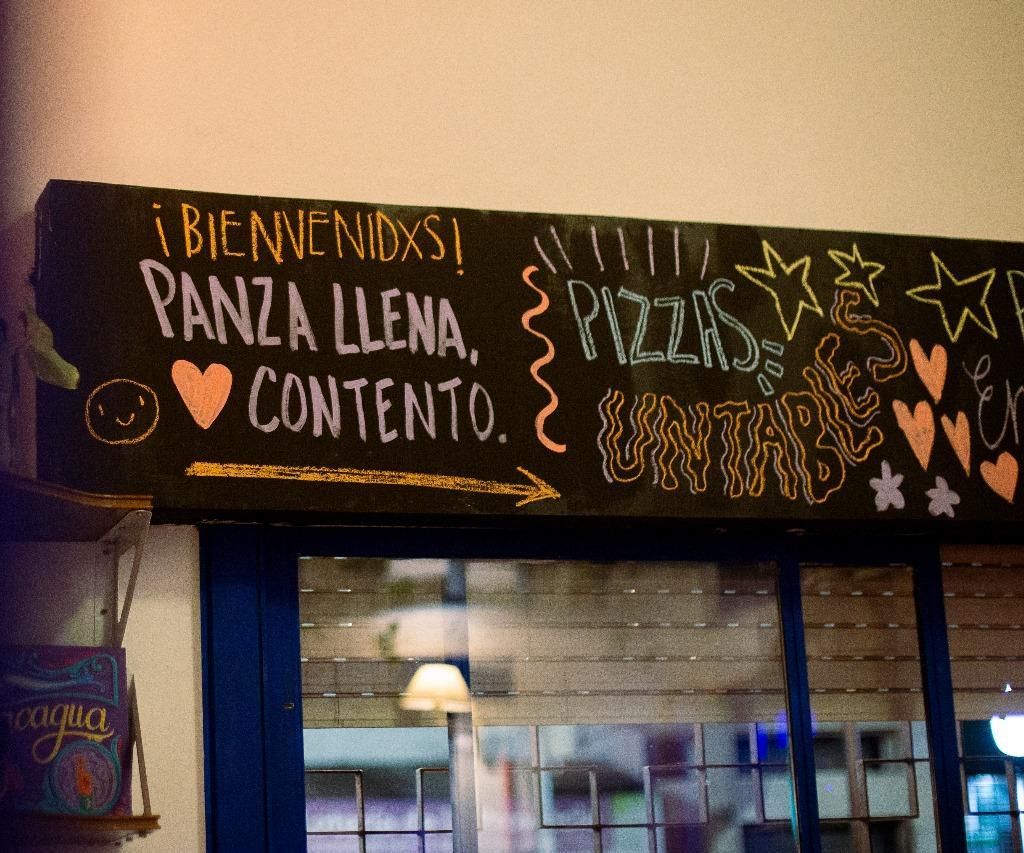 ¡BIENVENIDXS!
PANZA LLENA,
CONTENTO.
PIZZAS
UNTABLES